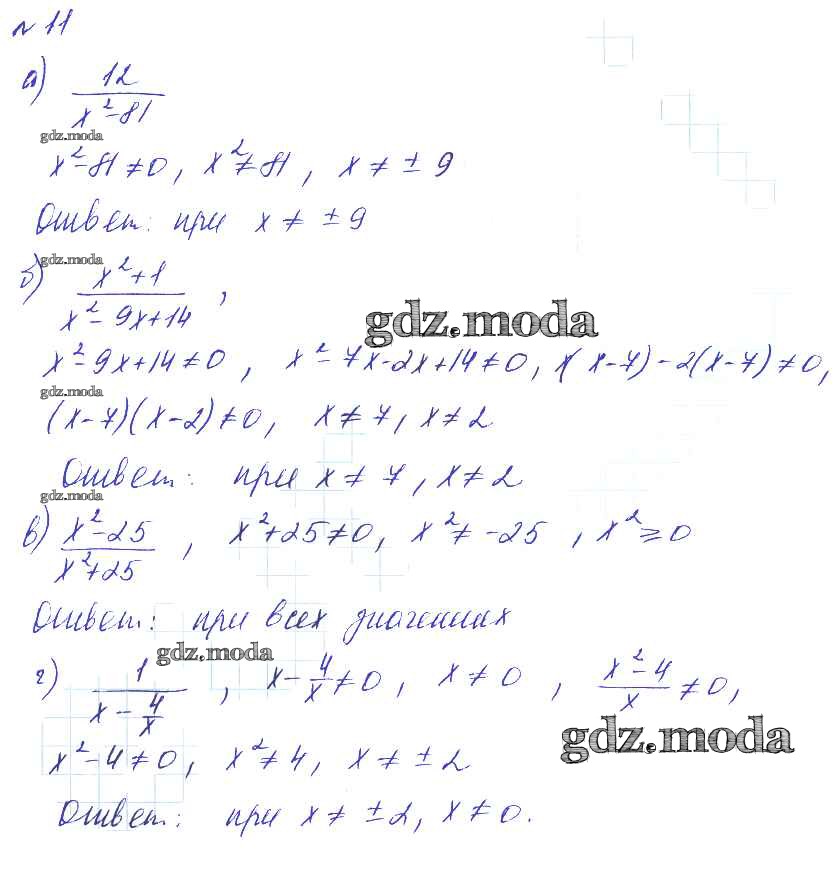 № 11
а) 12/(x²-81)
gdz.moda
x²-81≠0, x²≠81, x ≠ ± 9
Ответ: при x ≠ ±9
gdz.moda
б) (x²+1)/(x²-9x+14),
gdz.moda
x²-9x+14≠0, x²-7x-2x+14≠0, x(x-7)-2(x-7)≠0,
gdz.moda
(x-7)(x-2)≠0, x≠7, x≠2
Ответ: при x≠7, x≠2
gdz.moda
в) (x²-25)/(x²+25), x²+25≠0, x²≠-25, x²≥0
Ответ: при всех значениях
gdz.moda
г) 1/(x-4/x), x-4/x≠0, x≠0, (x²-4)/x≠0,
gdz.moda
x²-4≠0, x²≠4, x≠±2
Ответ: при x≠±2, x≠0.